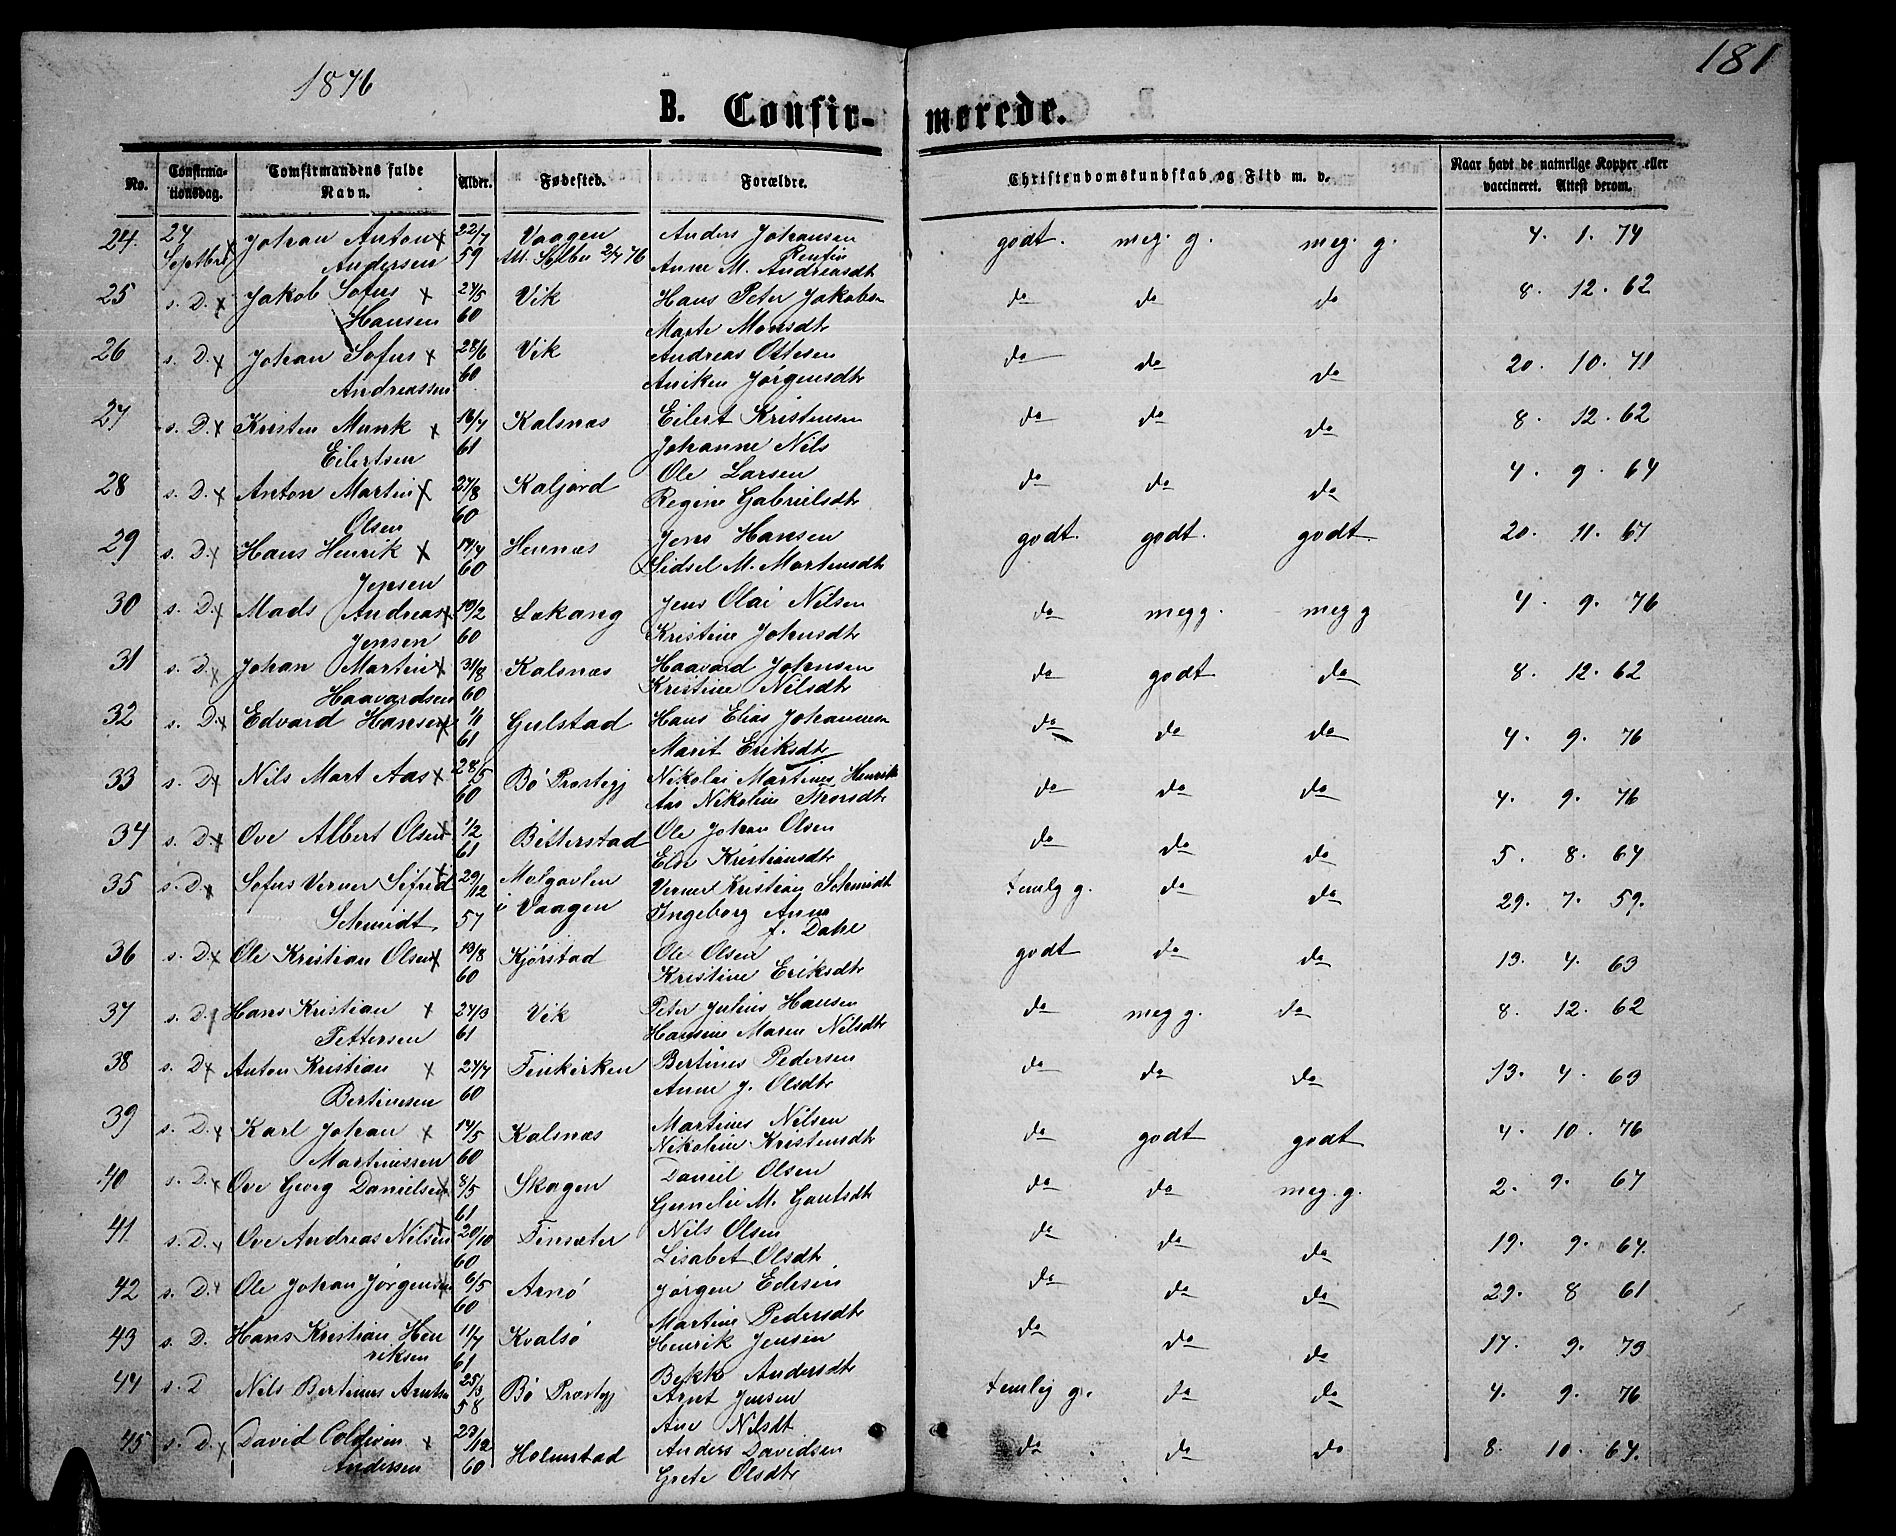 1876
181
B. Confir- merede.
No.
Confirma-
tionsdag.
Comfirmandens fulde
Navn.
Alder.
Fødested.
Forældre.
Christendomskundskab og Flid m. v.
Naar havt de naturlige Kopper eller
vaccineret. Attest derom.
24. 24 Johan Anton x 22/7 Vaagen Anders Johansen godt. meg. g. meg. g. 4. 1. 74
Septbr x Andersen 59 Anne M. Andreasdt
25 s. D. x Jakob Sofus x 24/5 Vik Hans Peter Jakobsen do do do 8. 12. 62
Hansen 60 Marte Monsdt
26 s. D. x Johan Sofus x 28/6 Vik Andreas Ottesen do do do 20. 10. 71
Andreassen 60 Aniken Jørgensdt
27 s. D. x Kristen Munk x 16/7 Kalsnæs Eilert Kristensen do do do 8. 12. 62
Eilertsen 61 Johanne Nils
28 s. D. x Anton Martin x 27/8 Kaljord Ole Larsen do do do 4. 9. 64
Olsen 60 Regine Gabrielsdt
29 s. D. x Hans Henrik x 14/4 Hennæs Jens Hansen godt. godt. godt 20. 11. 61
Jensen 60 Sidsel M. Martensdt
30 s. D. x Mads Andreas x 19/2 Lokang Jens Olai Nilsen do meg g. meg g 4. 9. 76
Jensen 60 Kristine Johnsdt
31 s. D. x Johan Martin x 31/8 Kalsnæs Haavard Johnsen do godt do 8. 12. 62
Haavardsen 60 Kristine Nilsdt
32 s. D. x Edvard Hansen x 1/1 Gulstad Hans Elias Johannesen do do do 4. 9. 76
61 Marit Eriksdt
33 s. D. x Nils Mart Aas x 28/5 Bø Præstegj Nikolai Martines Henrik do do do 4. 9. 76
60 Aas Nikoline Tronsdt
34 s. D. x Ove Albert Olsen x 1/2 Bitterstad Ole Johan Olsen do do do 5. 8. 64
61 Else Kristiansdt
35 s. D. x Sofus Verner Sifrid 29/12 Molgavlen Verner Kristian Schmidt temlg g. do do 29. 7. 59.
Schmidt 57 i Vaagen Ingeborg Anna
f. Dahl
36 s. D. x Ole Kristian Olsen x 19/8 Kjørstad Ole Olsen godt do do 13. 4. 63
60 Kristine Eriksdt
37 s. D. Hans Kristian x 24/3 Vik Peter Julius Hansen do meg g. do 8. 12. 62
Pettersen 61 Hansine Maren Nilsdt
38 s. D. x Anton Kristian x 24/7 Finkirken Bertines Pedersen do do do 13. 4. 63
Bertinesen 60 Anne J. Olsdt
39 s. D. x Karl Johan x 14/5 Kalsnæs Martines Nilsen do godt godt 4. 10. 76
Martinussen 60 Nikoline Kristensdt
40 s. D. x Ove Georg Danielsen x 8/5 Skagen Daniel Olsen do do meg. g. 2. 9. 67
61 Gunelie M. Gautsdt
41 s. D. x Ove Andreas Nilsen x 20/10 Finsæter Nils Olsen do do do 19. 9. 64.
60 Lisabet Olsdt
42 s. D. x Ole Johan Jørgensen x 6/5 Arnø Jørgen Edisen do do do 29. 8 61
60 Martine Pedersdt
43 s. D. Hans Kristian Hen 11/7 Kvalsø Henrik Jensen do do do 17. 9. 73
riksen 61 Bekka Andersdt
44 s. D Nils Bertinus Arntsen 25/3 Bø Præstgj Arnt Jensen temlig g. do do 4. 9. 76
58 Ane Nilsdt
45 s. D. x David Coldevin x 23/12 Holmstad Anders Davidsen do do do 8. 10. 64.
Andersen 60 Grete Olsdt